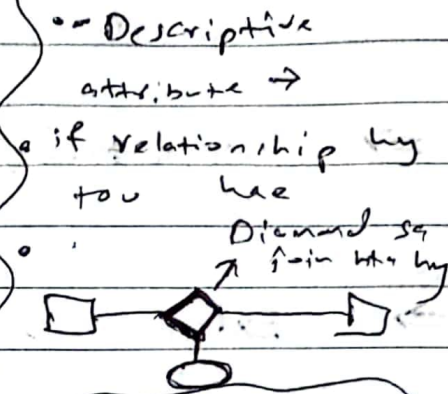 Descriptive
attribute →
if relationship hy
tou hae
Diamond se
join hta hy